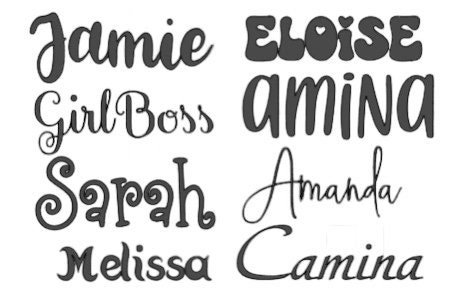 Jamie
ELOiSE
GirlBoss
aMiNa
Sarah
Amanda
Melissa
Camina